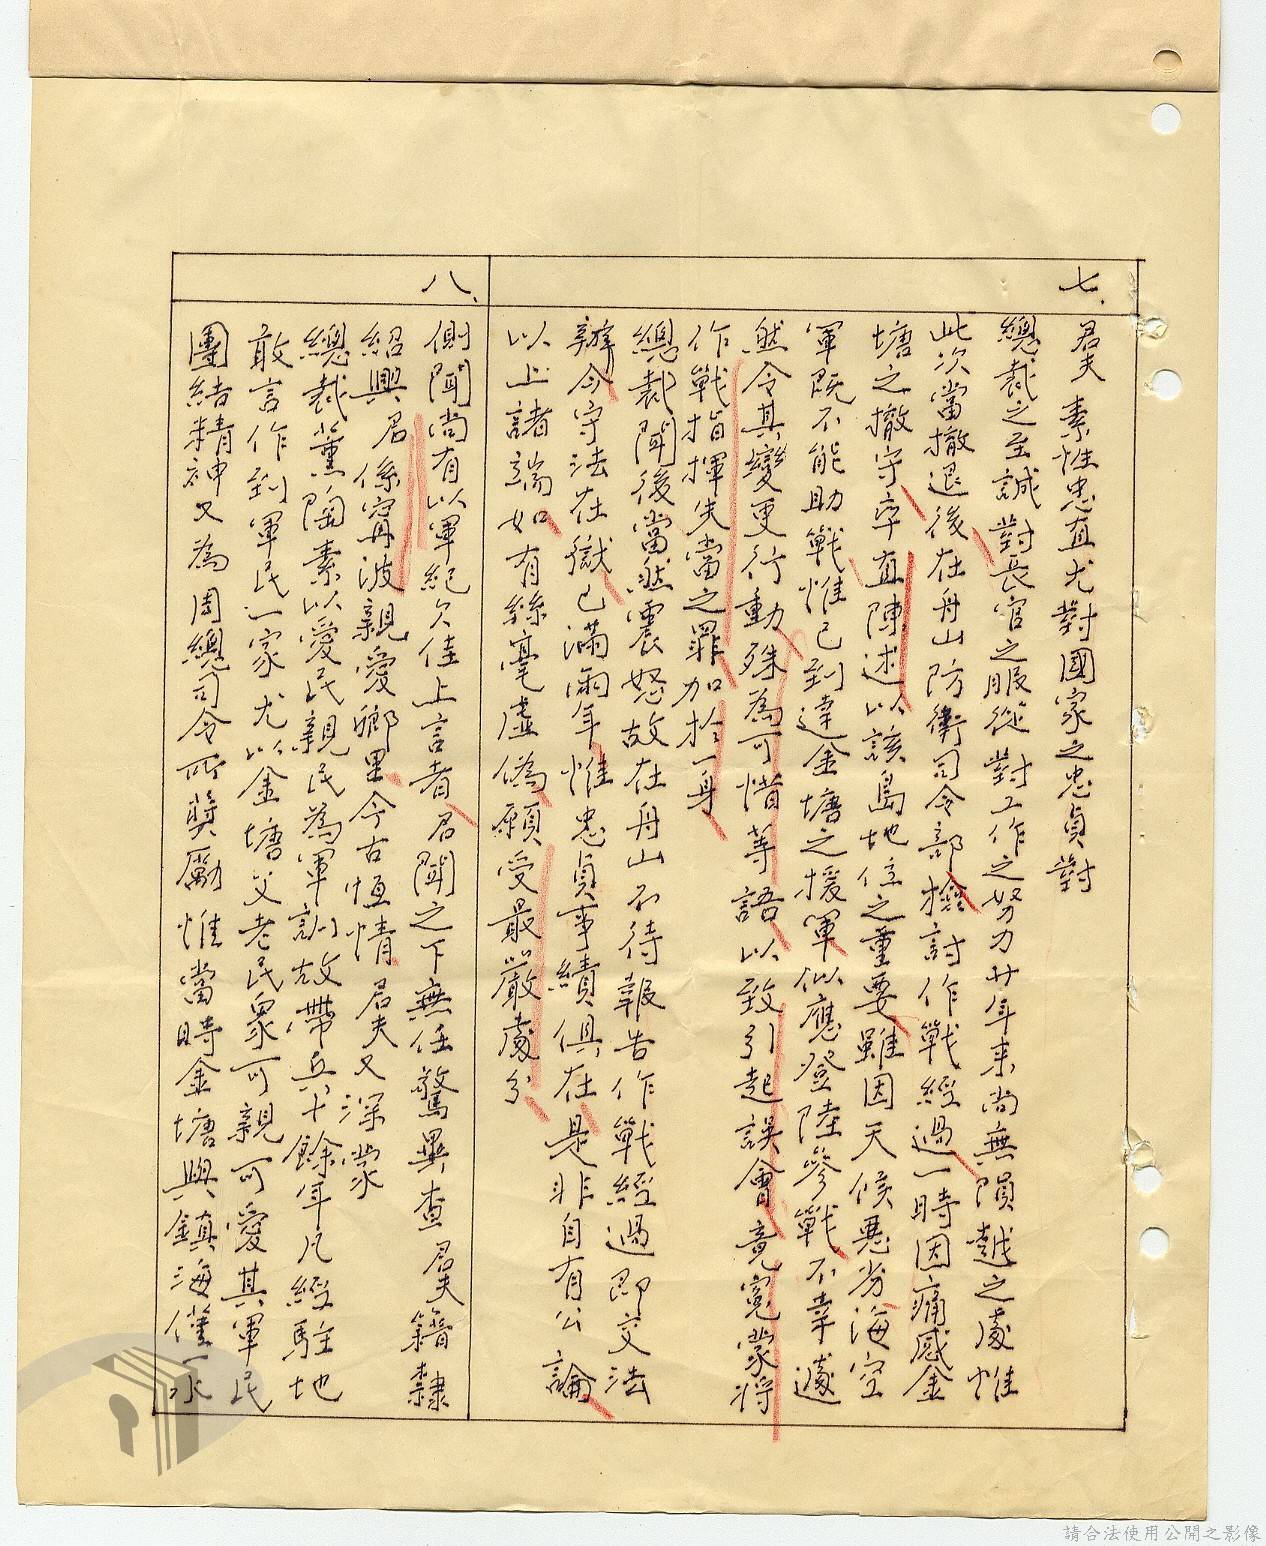 七、
君夫素性忠直尤對國家之忠貞對
總裁之至誠對長官之服從對工作之努力廿年來尚無隕越之處惟
此次當撤退後在舟山防衛司令部檢討作戰經過一時因痛感金
塘之撤守率直陳述以該島地位之重要雖因天候惡劣海空
軍既不能助戰惟已到達金塘之援軍似應登陸參戰不幸遽
然令其變更行動殊為可惜等語以致引起誤會竟冤蒙將
作戰指揮失當之罪加於一身
總裁聞後當然震怒故在舟山不待報告作戰經過即交法
辦今守法在獄已滿兩年惟忠貞事績俱在是非自有公論
以上諸端如有絲毫虛偽願受最嚴處分
八、
側聞尚有以軍紀欠佳上言者君聞之下無任驚異查君夫籍隸
紹興君係甯波親愛鄉里今古恆情君夫又深蒙
總裁薰陶素以愛民親民為軍訓故帶兵十餘年凡經駐地
敢言作到軍民一家尤以金塘父老民眾可親可愛其軍民
團結精神又為周總司令所獎勵惟當時金塘與鎮海僅一水
請合法使用公開之影像